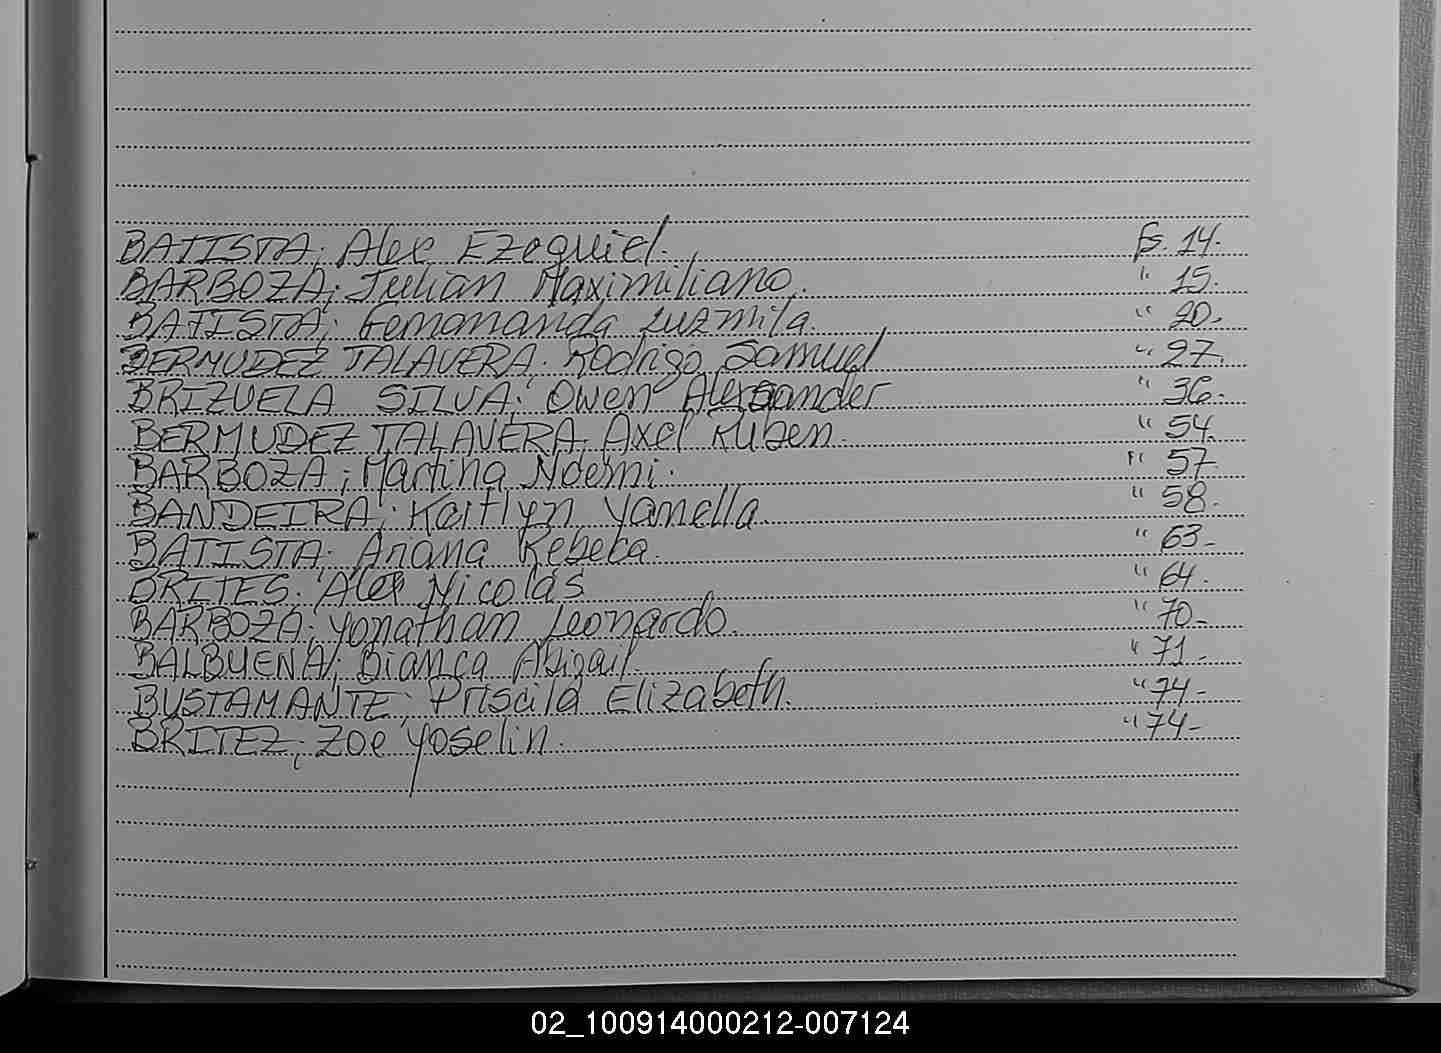 BATISTA; Alex Ezequiel. Fs. 14.
BARBOZA; Julian Maximiliano. " 15.
BATISTA; Luzmila. " 20.
BERMUDEZ TALAVERA; Rodrigo Samuel " 27.
BRIZUELA SILVA; Owen Alexsander " 36.
BERMUDEZ TALAVERA; Axel Ruben. " 54.
BARBOZA; Martina Noemi. " 57
BANDEIRA; Kaitlyn Yanella. " 58.
BATISTA; Ariana Rebeca. " 63-
BRITES; Alex Nicolás " 64.
BARBOZA; Yonathan Leonardo. " 70-
BALBUENA; Bianca Abigail. " 71-
BUSTAMANTE; Priscila Elizabeth. " 74-
BRITEZ; Zoe Yoselin. " 74-
02_100914000212-007124